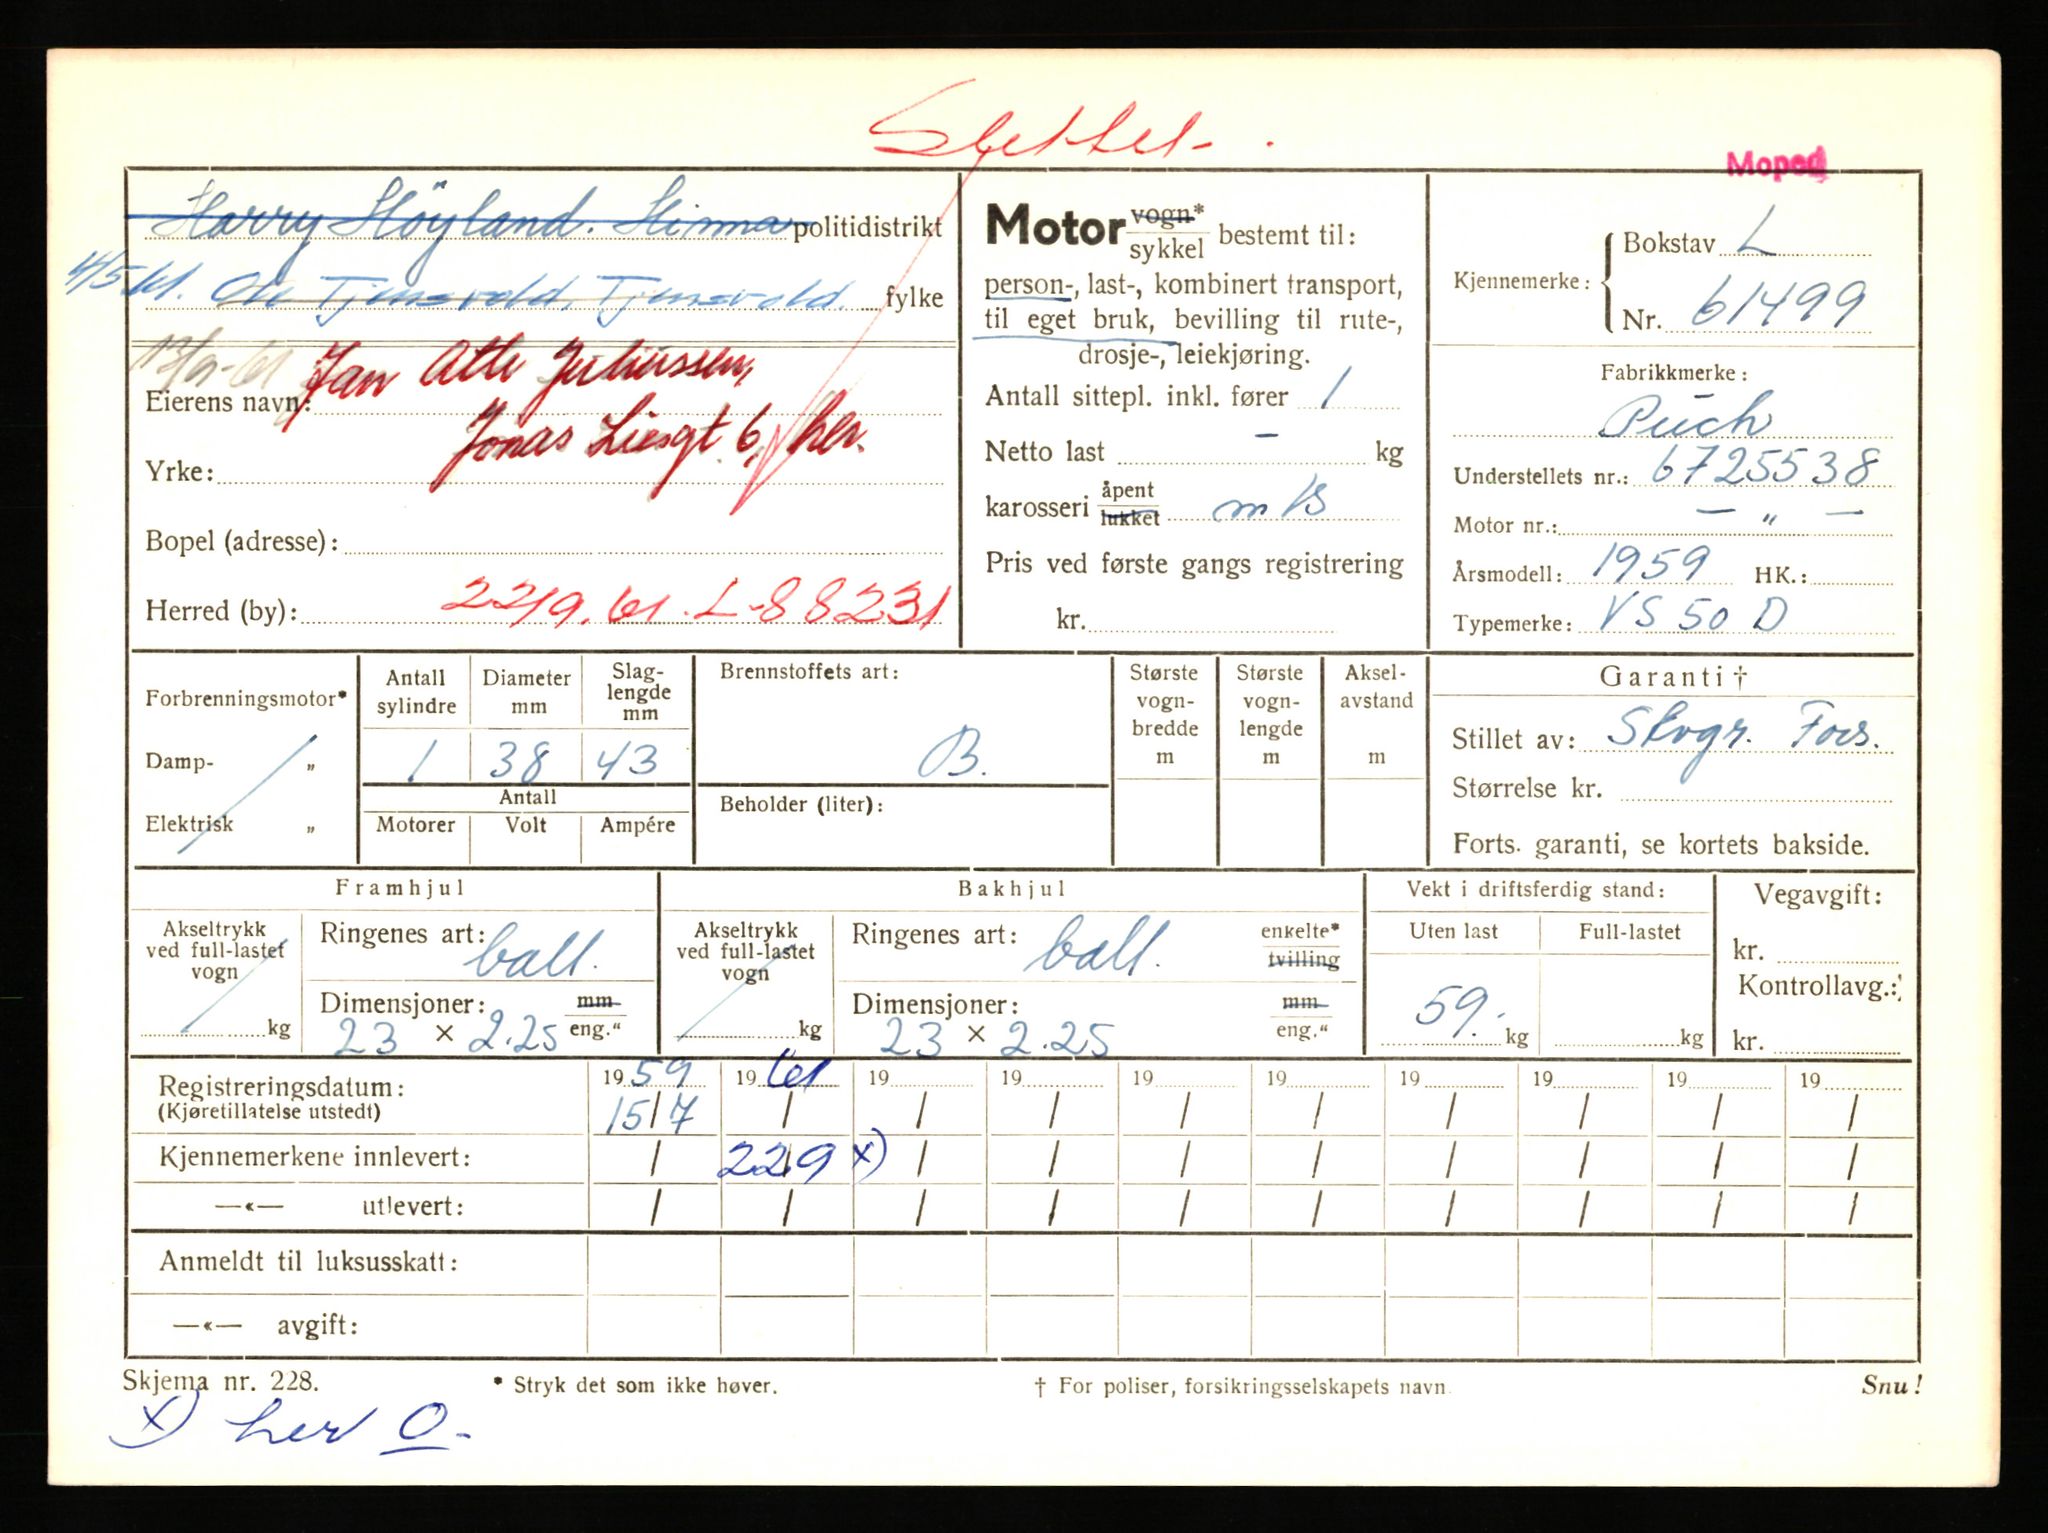 Slettet.
Moped
Harry Höyland. Hinna politidistrikt
4/5.61. Ole Tjensvold, Tjensvold. fylke
Jan Atle Juliussen,
Eierens navn:
Jonas Liesgt. 6, her.
Yrke:
Bopel (adresse):
Herred (by): 22/9.61. L-88231
Motor vogn* sykkel bestemt til:
person-, last-, kombinert transport,
til eget bruk, bevilling til rute-,
drosje-, leiekjøring.
Antall sittepl. inkl. fører 1
Netto last - kg
karosseri åpent lukket m/B
Pris ved første gangs registrering
kr.
Kjennemerke: Bokstav L
Nr. 61499
Fabrikkmerke:
Puch
Understellets nr.: 6725538
Motor nr.: — „ —
Årsmodell: 1959 HK.:
Typemerke: VS 50 D
Forbrenningsmotor*
Damp- „
Elektrisk „
Antall sylindre Diameter mm Slaglengde mm
1 38 43
Antall
Motorer Volt Ampére
Brennstoffets art:
B.
Beholder (liter):
Største vognbredde m
Største vognlengde m
Akselavstand m
Garanti †
Stillet av: Stvgr. Fors.
Størrelse kr.
Forts. garanti, se kortets bakside.
Framhjul
Akseltrykk ved full-lastet vogn kg
Ringenes art: ball.
Dimensjoner: mm
23 × 2.25 eng."
Bakhjul
Akseltrykk ved full-lastet vogn kg
Ringenes art: ball. enkelte* tvilling
Dimensjoner: mm
23 × 2.25 eng."
Vekt i driftsferdig stand:
Uten last Full-lastet
59. kg kg
Vegavgift:
kr.
Kontrollavg.:
kr.
Registreringsdatum: 1959 1961 19 19 19 19 19 19 19 19
(Kjøretillatelse utstedt) 15/7 / / / / / / / / /
Kjennemerkene innlevert: / 22/9 x) / / / / / / / /
—«— utlevert: / / / / / / / / / /
Anmeldt til luksusskatt:
—«— avgift:
Skjema nr. 228. * Stryk det som ikke høver. † For poliser, forsikringsselskapets navn Snu!
x) her O.